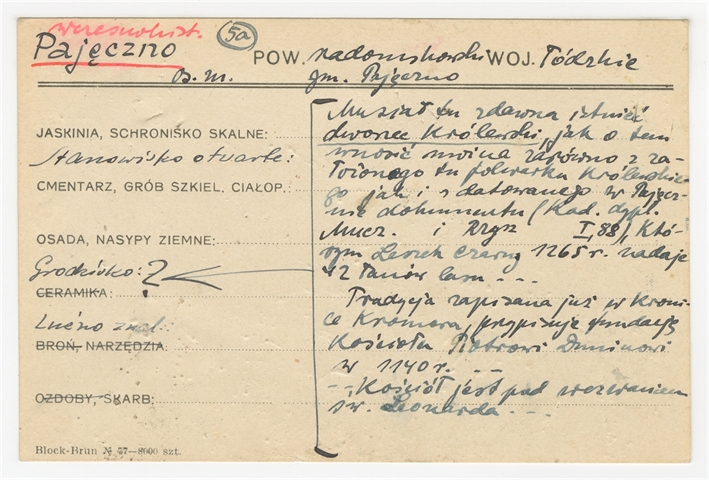 wczesnohist.
Pajęczno 5a POW. radomskowski WOJ. Łódzkie
gm. Pajęczno
JASKINIA, SCHRONISKO SKALNE:
Stanowisko otwarte:
CMENTARZ, GRÓB SZKIEL. CIAŁOP.
OSADA, NASYPY ZIEMNE:
Grodzisko: ?
CERAMIKA:
Luźno znal.:
BROŃ, NARZĘDZIA
OZDOBY, SKARB:
Block-Brun № 77—8000 szt.
Musiał tu zdawna istnieć
dworzec Królewski, jak o tem
wnosić można zarówno z za-
łożonego tu folwarku Królewskie-
go jak i z datowanego w Pajęcz-
nie dokumentu (Kod. dypl.
Mucz. i Rzysz I, 88), Któ-
rym Leszek Czarny 1265 r. nadaje
12 łanów lasu - - -
Tradycja zapisana już w Kroni-
ce Kromera, przypisuje fundację
Kościoła Piotrowi Duninowi
w 1140 r.
- - Kościół jest pod wezwaniem
św. Leonarda - -